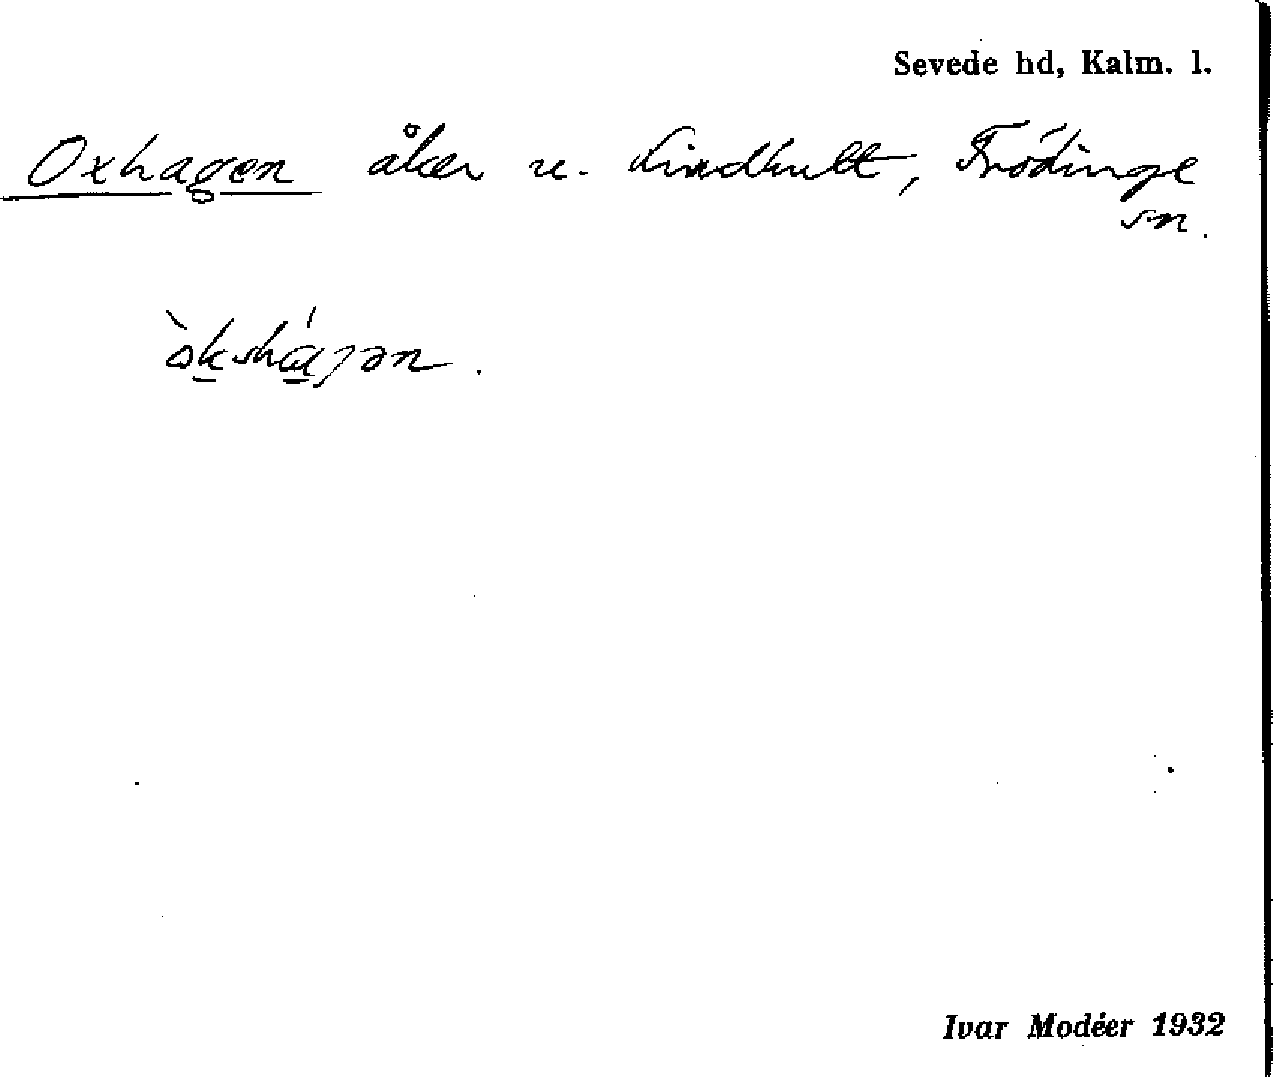 Sevede hd, Kalm. l.
Oxhagen åker u. Lindhult, Frödinge
sn.
Ivar Modéer 1932